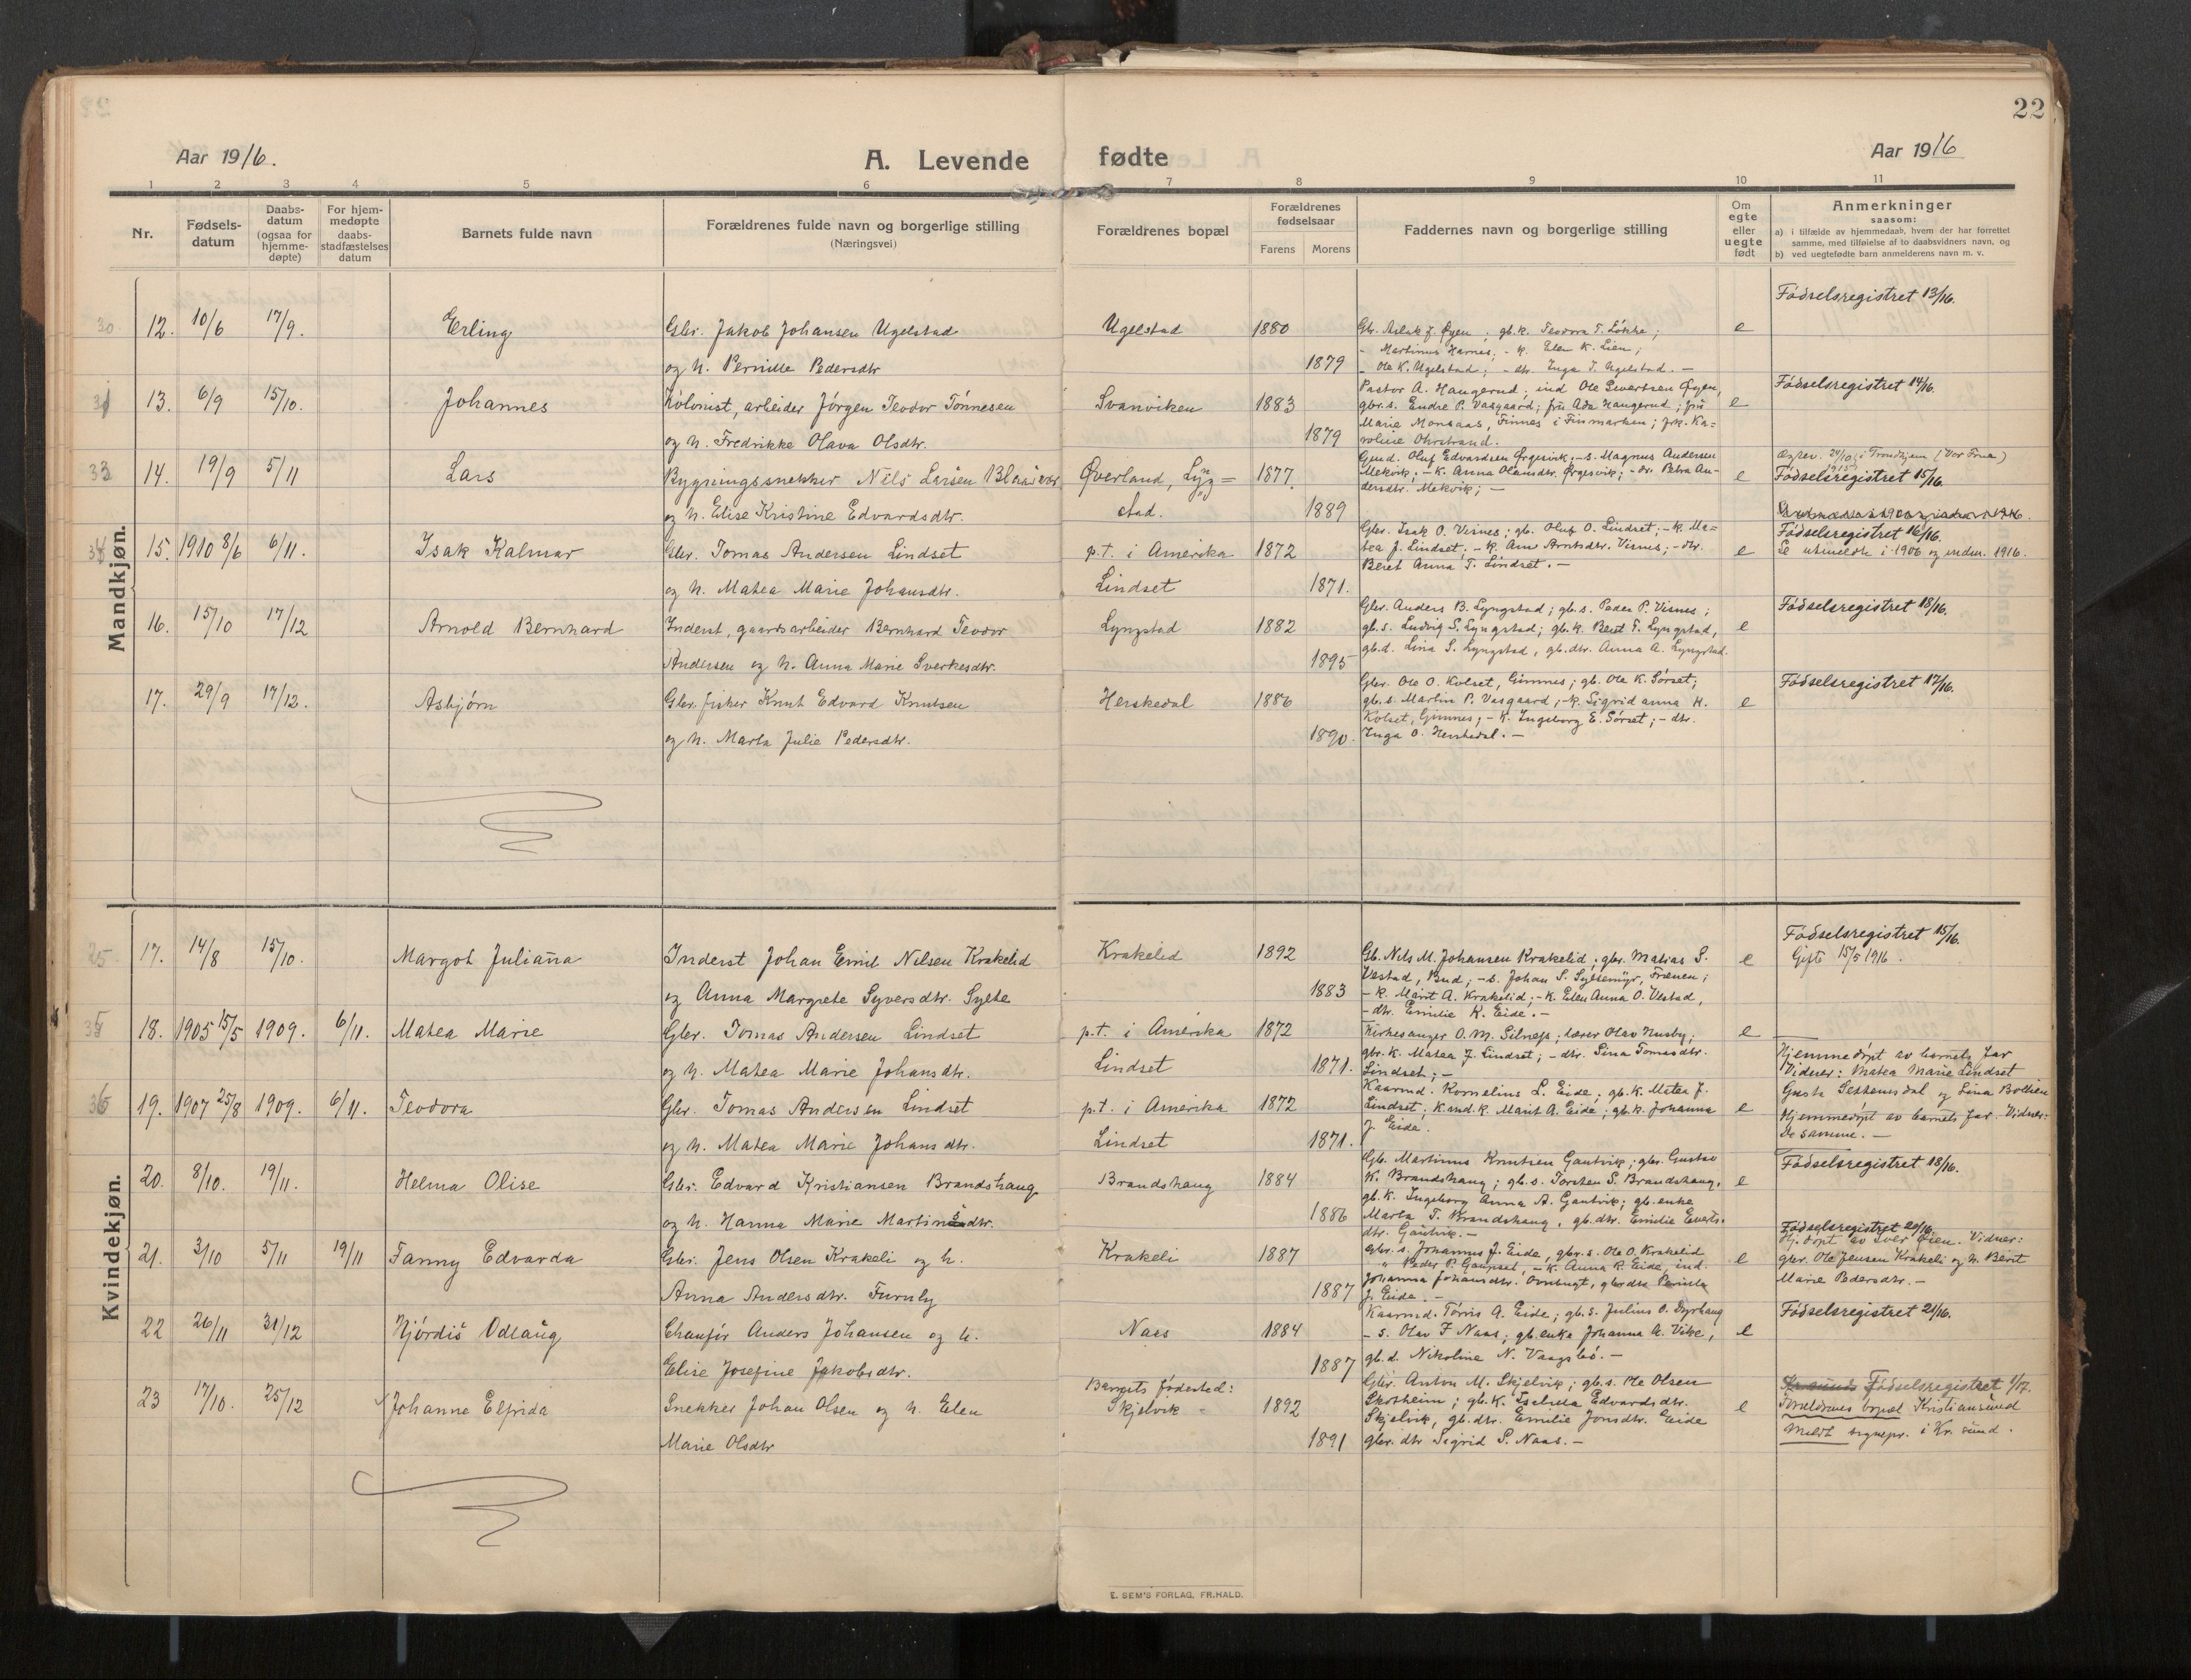 22
Aar 1916.
A. Levende fødte
Aar 1916
1 2 3 4 5 6 7 8 9 10 11
Nr.
Fødsels-
datum
Daabs-
datum
(ogsaa for
hjemme-
døpte)
For hjem-
medøpte
daabs-
stadfæstelses
datum
Barnets fulde navn
Forældrenes fulde navn og borgerlige stilling
(Næringsvei)
Forældrenes bopæl
Forældrenes
fødselsaar
Farens Morens
Faddernes navn og borgerlige stilling
Om
egte
eller
uegte
født
Anmerkninger
saasom:
a) i tilfælde av hjemmedaab, hvem der har forrettet
samme, med tilføielse af to daabsvidners navn, og
b) ved uegtefødte barn anmelderens navn m. v.
Mandkjøn.
30 12. 10/6 17/9. Erling
Gbr. Jakob Johansen Ugelstad
og h. Pernille Pedersdtr
Ugelstad 1880
1879
Gbr. Aslak J. Øyen; gb.k. Teodora T. Løkke;
- Martinus Harnes; - k. Elen K. Lien;
- Ole K. Ugelstad; - dtr. Inga T. Ugelstad. -
e
Fødselsregistret 13/16.
31 13. 6/9 15/10. Johannes
Kolonist, arbeider Jørgen Teodor Tønnesen
og h. Fredrikke Olava Olsdtr.
Svanviken 1883
1879
Pastor A. Haugerud; ind Ole Sivertsen Øyen,
gbr.s. Endre P. Vasgaard; fru Ada Haugerud; fru
Marie Monsaas, Finnes i Finmarken; frk. Ka-
roline Ohrstrand.
e
Fødselsregistret 14/16.
33 14. 19/9 5/11 Lars
Bygningssnekker Nils Larsen Blaasvær
og h. Elise Kristine Edvardsdtr.
Øverland, Lyng=
stad.
1877.
1889
Gmd. Oluf Edvardsen Ørgesvik; - s. Magnus Andersen
Mekvik; - k. Anna Olausdtr. Ørgesvik; - dr. Petra An-
dersdtr. Mekvik; -
e
i Trondhjem (Vor Frue)
Fødselsregistret 15/16.
34 15. 1910 8/6 6/11. Isak Kalmar
Gbr. Tomas Andersen Lindset
og h. Matea Marie Johansdtr.
p.t. i Amerika
Lindset
1872
1871.
Gbr. Isak O. Visnes; gb. Oluf O. Lindset; - k. Ma=
tea J. Lindset; - k. Ane Arntsdtr. Visnes; - dtr.
Beret Anna T. Lindset. -
e
Fødselsregistret 16/16.
Se utmeldte i 1906 og indm. 1916.
16. 15/10 17/12 Arnold Bernhard
Inderst, gaardsarbeider Bernhard Teodor
Andersen og h. Anna Marie Sverkesdtr.
Lyngstad 1882
1895
Gbr. Anders B. Lyngstad; gb.s. Peder P. Visnes;
gb.s. Ludvig S. Lyngstad; gb.k. Beret T. Lyngstad,
gb.d. Lina S. Lyngstad, gb.dtr. Anna A. Lyngstad.
e
Fødselsregistret 18/16.
17. 29/9 17/12. Asbjørn
Gbr. fisker Knut Edvard Knutsen
og h. Marta Julie Pedersdtr.
Herskedal 1886
1890.
Gbr. Ole O. Kolset, Gimnes; gb. Ole K. Sørset;
gb.s. Martin P. Vasgaard; - k. Sigrid Anna H.
Kolset, Gimnes; - k. Ingeborg E. Sørset; - dtr.
Inga O. Herskedal. -
e
Fødselsregistret 17/16.
Kvindekjøn.
25. 17. 14/8 15/10. Margot Juliana
Inderst Johan Emil Nilsen Krakelid
og Anna Margrete Syversdtr. Sylte
Krakelid 1892
1883
Gb. Nils M. Johansen Krakelid; gbr. Matias S.
Vestad, Bud; - s. Johan S. Syltemyr, Frænen;
- k. Marit A. Krakelid; - k. Elen Anna O. Vestad,
- dtr. Emilie K. Eide. -
e
Fødselsregistret 15/16.
Gifte 15/5 1916.
35 18. 1905 15/5 1909. 6/11. Matea Marie
Gbr. Tomas Andersen Lindset
og h. Matea Marie Johansdtr.
p.t. i Amerika
Lindset
1872
1871.
Kirkesanger O. M. Silnes; lærer Olav Husby;
gbr.k. Matea J. Lindset; - dtr. Lina Tomasdtr.
Lindset; -
e
Hjemmedøpt av barnets far
Vidner: Matea Marie Lindset
36 19. 1907 25/8 1909. 6/11. Teodora
Gbr. Tomas Andersen Lindset
og h. Matea Marie Johansdtr.
p.t. i Amerika
Lindset
1872
1871.
Kaarmd. Kornelius L. Eide; gb.k. Matea J.
Lindset; kmd.k. Marit A. Eide; gb.k. Johanna
J. Eide.
e
Hjemmedøpt av barnets far. Vidner:
De samme. -
20. 8/10. 19/11. Helma Olise
Gbr. Edvard Kristiansen Brandshaug
og h. Hanna Marie Martinsdtr.
Brandshaug 1884
1886
Gb. Martinus Knutsen Gautvik; gbr. Gustav
K. Brandshaug; gb.s. Torsten S. Brandshaug,
gb.k. Ingeborg Anna A. Gautvik; gb.enke
Marta T. Brandshaug, gb.dtr. Emilie Everts-
dtr. Gautvik. -
e
Fødselsregistret 18/16.
21. 3/10 5/11 19/11 Fanny Edvarda
Gbr. Jens Olsen Krakeli og h.
Anna Andersdtr. Furuly
Krakeli 1887
1887
gbr.s. Johannes J. Eide, gbr.s. Ole O. Krakelid
- " Peder P. Gaupset, - k. Anna R. Eide, ind.
Johanna Johansdtr. gbrdtr Pernila
J. Eide. -
e
Fødselsregistret 20/16.
Hj. døpt av Iver Øien. Vidner:
gbr. Ole Jensen Krakeli og h. Berit
Marie Pedersdtr. -
22 26/11 31/12 Hjördis Odlaug
Chaufør Anders Johansen og h.
Elise Josefine Jakobsdtr.
Naas 1884
1887
Kaarmd. Tøns A. Eide; gb.s. Julius O. Dyrhaug
- s. Olav F. Naas; gb.enke Johanna A. Vike,
gb.d. Nikoline N. Vaagsbø. -
e
Fødselsregistret 21/16.
23 17/10. 25/12 Johanna Elfrida
Snekker Johan Olsen og h. Elen
Marie Olsdtr
Barnets fødested:
Skjelvik -
1892
1891
Gbr. Anton M. Skjelvik; gb.s. Ole Olsen
Skotheim; gb.k. Edvardsdtr.
Skjelvik, gb.dtr. Emilie Jonsdtr. Eide
gbr.dtr Sigrid S. Naas. -
e
Fødselsregistret 1/17.
Forældrenes bopæl Kristiansund
Meldt sognepr. i Kr.sund.
E. SEM'S FORLAG, FR.HALD.